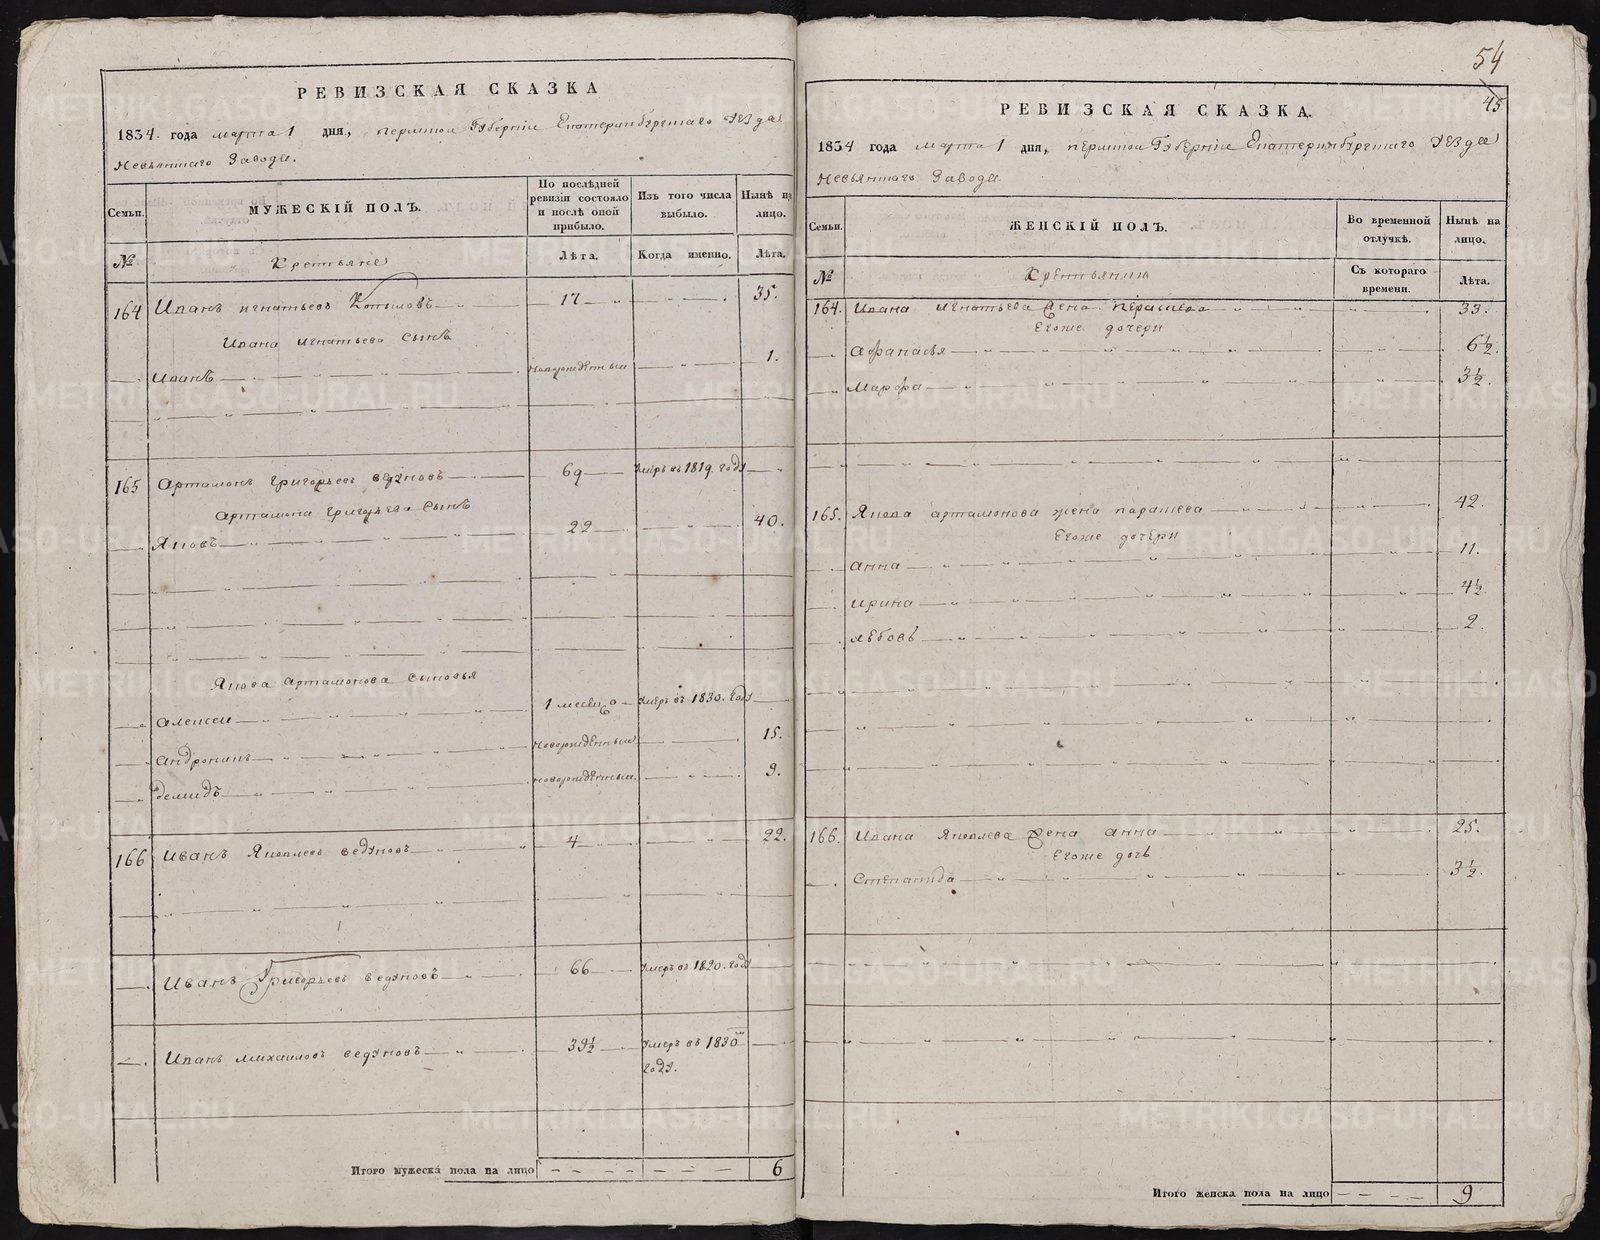 РЕВИЗСКАЯ СКАЗКА
1834 года марта 1 дня, пермской Губерніи Екатеринбургскаго Уѣзда
Невьянскаго Завода.
Семьи.
МУЖЕСКІЙ ПОЛЪ.
По послѣдней ревизіи состояло и послѣ оной прибыло.
Изъ того числа выбыло.
Нынѣ на лицо.
№
Крестьяне
Лѣта.
Когда именно.
Лѣта.
164 Иванъ игнатьевъ Копыловъ 17 35.
Ивана игнатьева сынъ
Иванъ новорожденныи 1.
165 Артамонъ григорьевъ ведуновъ 69 умеръ въ 1819. году
Артамона григорьева сынъ
Яковъ 22 40.
Якова артамонова сыновья
Алексеи 1 месяцо умеръ въ 1830. году
Андроникъ новорожденныи 15.
Демидъ новорожденныи. 9.
166 Иванъ Яковлевъ ведуновъ 4 22.
Иванъ Григорьевъ ведуновъ 66 умеръ въ 1820. году
Иванъ михаиловъ ведуновъ 39½ умеръ въ 1830
году.
Итого мужеска пола на лицо 6
54
45
РЕВИЗСКАЯ СКАЗКА.
1834 года марта 1 дня, пермской Губерніи Екатеринбургскаго Уѣзда
Невьянскаго Завода.
Семьи.
ЖЕНСКІЙ ПОЛЪ.
Во временной отлучкѣ.
Нынѣ на лицо.
№
Съ котораго времени.
Лѣта.
164. Ивана игнатьева жена 33.
Егоже дочери
Афанасья 6½.
Марфа 3½.
165. Якова артамонова жена парасева 42.
Егоже дочери
Анна 11.
ирина 4½
любовь 2.
166. Ивана Яковлева жена анна 25.
Егоже дочь
Степанида 3½.
Итого женска пола на лицо 9
METRIKI.GASO-URAL.RU